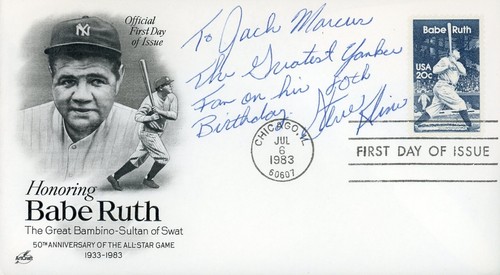 Official
First Day
of Issue
NY
To Jack Marcus
The Greatest Yankee
Fan on his 50th
Birthday.
Steve Hine
Babe Ruth
USA
20c
CHICAGO, IL
JUL
6
1983
60607
FIRST DAY OF ISSUE
Honoring
Babe Ruth
The Great Bambino-Sultan of Swat
50TH ANNIVERSARY OF THE ALL-STAR GAME
1933-1983